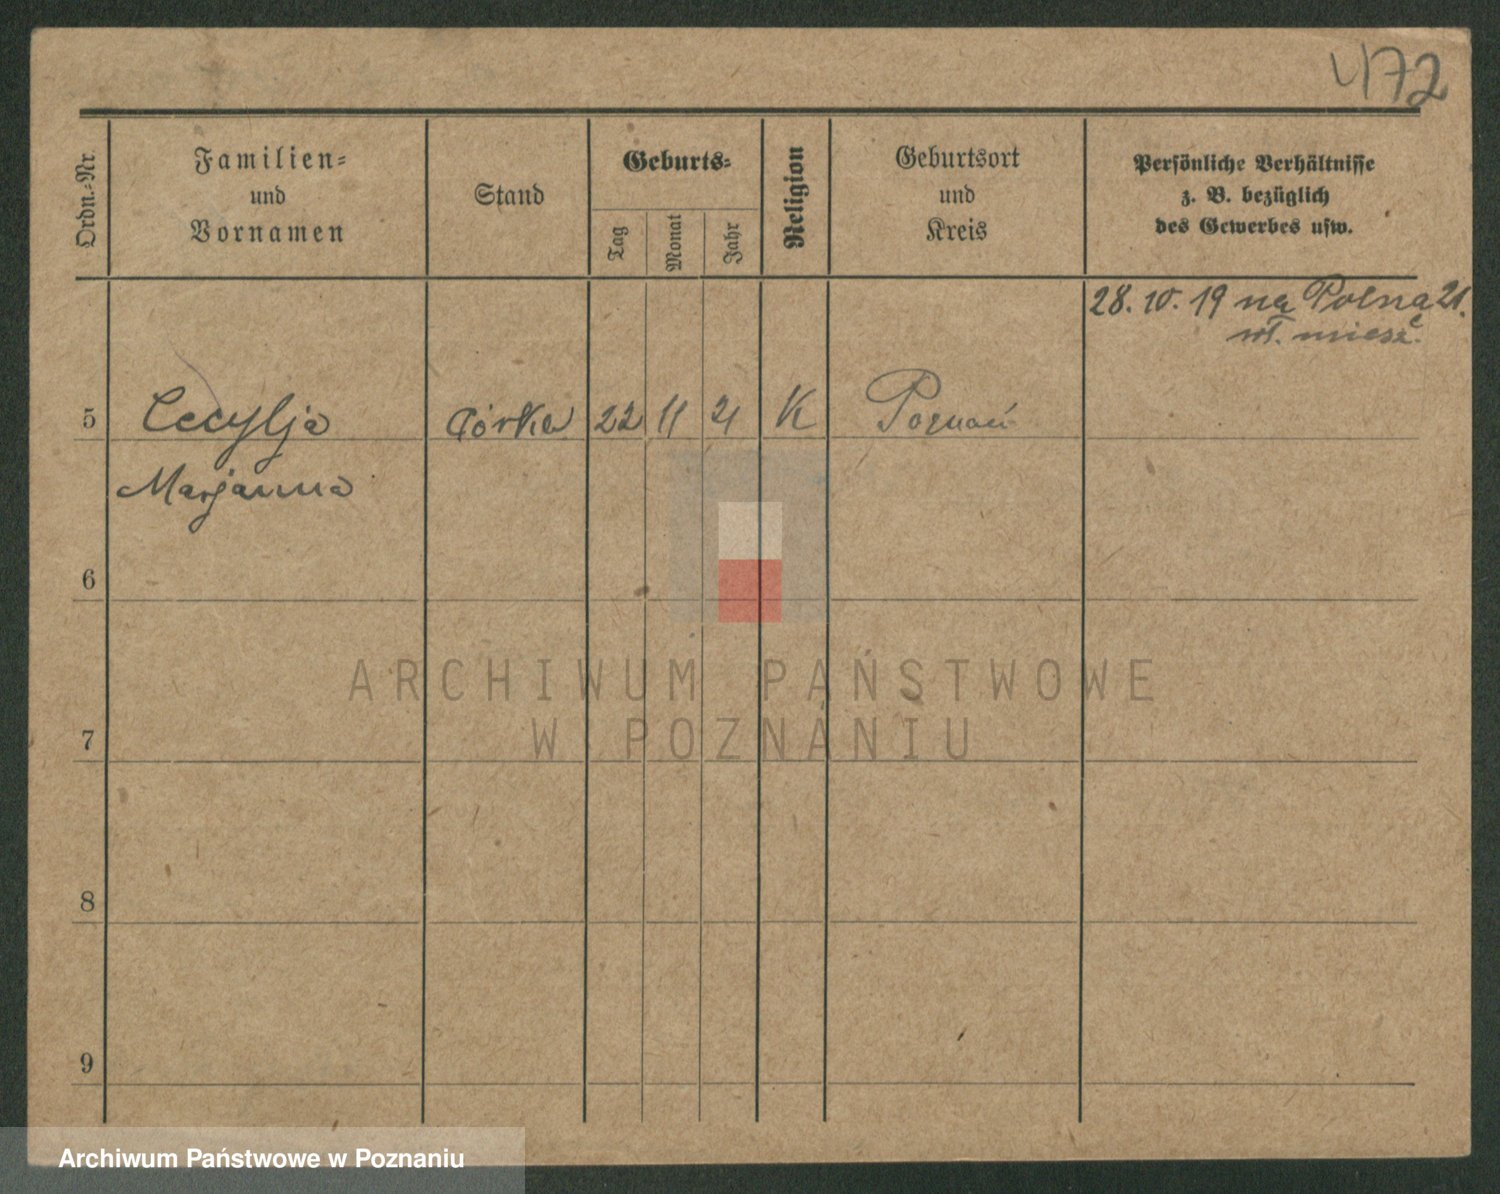 472
Ordn.-Nr.
Familien-
und
Vornamen
Stand
Geburts-
Tag
Monat
Jahr
Religion
Geburtsort
und
Kreis
Persönliche Verhältnisse
z. B. bezüglich
des Gewerbes usw.
28. 10. 19 na Polną 21.
wł. miesz.
5 Cecylja córka 22 11 21 K Poznań
Marjanna
6
7
8
9
ARCHIWUM PAŃSTWOWE
W POZNANIU
Archiwum Państwowe w Poznaniu